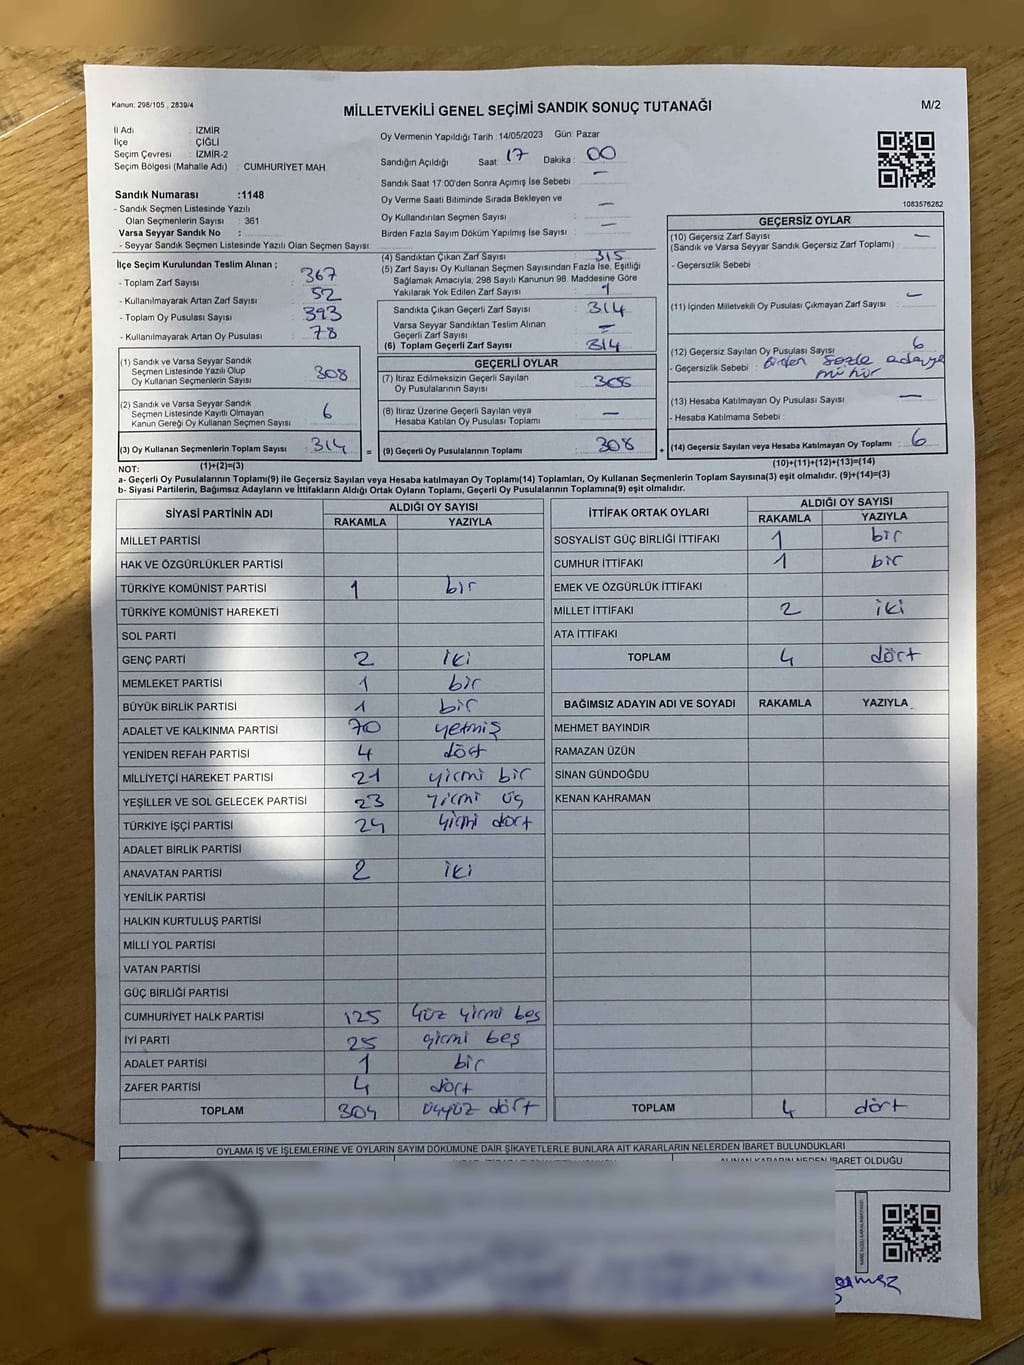 Kanun: 298/105 , 2839/4
MİLLETVEKİLİ GENEL SEÇİMİ SANDIK SONUÇ TUTANAĞI
M/2
İl Adı : İZMİR
İlçe : ÇİĞLİ
Seçim Çevresi : İZMİR-2
Seçim Bölgesi (Mahalle Adı) : CUMHURİYET MAH
Sandık Numarası :1148
- Sandık Seçmen Listesinde Yazılı
Olan Seçmenlerin Sayısı : 361
Varsa Seyyar Sandık No :
- Seyyar Sandık Seçmen Listesinde Yazılı Olan Seçmen Sayısı:
Oy Vermenin Yapıldığı Tarih : 14/05/2023 Gün: Pazar
Sandığın Açıldığı Saat : 17 Dakika : 00
Sandık Saat 17:00'den Sonra Açımış İse Sebebi : —
Oy Verme Saati Bitiminde Sırada Bekleyen ve
Oy Kullandırılan Seçmen Sayısı : —
Birden Fazla Sayım Döküm Yapılmış İse Sayısı : —
1083576282
İlçe Seçim Kurulundan Teslim Alınan ;
- Toplam Zarf Sayısı : 367
- Kullanılmayarak Artan Zarf Sayısı : 52
- Toplam Oy Pusulası Sayısı : 393
- Kullanılmayarak Artan Oy Pusulası : 78
(1) Sandık ve Varsa Seyyar Sandık
Seçmen Listesinde Yazılı Olup
Oy Kullanan Seçmenlerin Sayısı : 308
(2) Sandık ve Varsa Seyyar Sandık
Seçmen Listesinde Kayıtlı Olmayan
Kanun Gereği Oy Kullanan Seçmen Sayısı : 6
(3) Oy Kullanan Seçmenlerin Toplam Sayısı : 314 =
(1)+(2)=(3)
(4) Sandıktan Çıkan Zarf Sayısı : 315
(5) Zarf Sayısı Oy Kullanan Seçmen Sayısından Fazla İse, Eşitliği
Sağlamak Amacıyla; 298 Sayılı Kanunun 98. Maddesine Göre
Yakılarak Yok Edilen Zarf Sayısı : 1
Sandıkta Çıkan Geçerli Zarf Sayısı : 314
Varsa Seyyar Sandıktan Teslim Alınan
Geçerli Zarf Sayısı : —
(6) Toplam Geçerli Zarf Sayısı : 314
GEÇERLİ OYLAR
(7) İtiraz Edilmeksizin Geçerli Sayılan
Oy Pusulalarının Sayısı : 308
(8) İtiraz Üzerine Geçerli Sayılan veya
Hesaba Katılan Oy Pusulası Toplamı : —
(9) Geçerli Oy Pusulalarının Toplamı : 308 +
GEÇERSİZ OYLAR
(10) Geçersiz Zarf Sayısı : —
(Sandık ve Varsa Seyyar Sandık Geçersiz Zarf Toplamı)
- Geçersizlik Sebebi :
(11) İçinden Milletvekili Oy Pusulası Çıkmayan Zarf Sayısı : —
(12) Geçersiz Sayılan Oy Pusulası Sayısı : 6
- Geçersizlik Sebebi : Birden fazla adaya
mühür
(13) Hesaba Katılmayan Oy Pusulası Sayısı : —
- Hesaba Katılmama Sebebi :
(14) Geçersiz Sayılan veya Hesaba Katılmayan Oy Toplamı : 6
(10)+(11)+(12)+(13)=(14)
NOT:
a- Geçerli Oy Pusulasının Toplamı(9) ile Geçersiz Sayılan veya Hesaba katılmayan Oy Toplamı(14) Toplamları, Oy Kullanan Seçmenlerin Toplam Sayısına(3) eşit olmalıdır. (9)+(14)=(3)
b- Siyasi Partilerin, Bağımsız Adayların ve İttifakların Aldığı Ortak Oyların Toplamı, Geçerli Oy Pusulalarının Toplamına(9) eşit olmalıdır.
SİYASİ PARTİNİN ADI ALDIĞI OY SAYISI
RAKAMLA YAZIYLA
MİLLET PARTİSİ
HAK VE ÖZGÜRLÜKLER PARTİSİ
TÜRKİYE KOMÜNİST PARTİSİ 1 bir
TÜRKİYE KOMÜNİST HAREKETİ
SOL PARTİ
GENÇ PARTİ 2 iki
MEMLEKET PARTİSİ 1 bir
BÜYÜK BİRLİK PARTİSİ 1 bir
ADALET VE KALKINMA PARTİSİ 70 yetmiş
YENİDEN REFAH PARTİSİ 4 dört
MİLLİYETÇİ HAREKET PARTİSİ 21 yirmi bir
YEŞİLLER VE SOL GELECEK PARTİSİ 23 yirmi üç
TÜRKİYE İŞÇİ PARTİSİ 24 yirmi dört
ADALET BİRLİK PARTİSİ
ANAVATAN PARTİSİ 2 iki
YENİLİK PARTİSİ
HALKIN KURTULUŞ PARTİSİ
MİLLİ YOL PARTİSİ
VATAN PARTİSİ
GÜÇ BİRLİĞİ PARTİSİ
CUMHURİYET HALK PARTİSİ 125 yüz yirmi beş
İYİ PARTİ 25 yirmi beş
ADALET PARTİSİ 1 bir
ZAFER PARTİSİ 4 dört
TOPLAM 304 üçyüz dört
İTTİFAK ORTAK OYLARI ALDIĞI OY SAYISI
RAKAMLA YAZIYLA
SOSYALİST GÜÇ BİRLİĞİ İTTİFAKI 1 bir
CUMHUR İTTİFAKI 1 bir
EMEK VE ÖZGÜRLÜK İTTİFAKI
MİLLET İTTİFAKI 2 iki
ATA İTTİFAKI
TOPLAM 4 dört
BAĞIMSIZ ADAYIN ADI VE SOYADI RAKAMLA YAZIYLA
MEHMET BAYINDIR
RAMAZAN ÜZÜN
SİNAN GÜNDOĞDU
KENAN KAHRAMAN
TOPLAM 4 dört
OYLAMA İŞ VE İŞLEMLERİNE VE OYLARIN SAYIM DÖKÜMÜNE DAİR ŞİKAYETLERLE BUNLARA AİT KARARLARIN NELERDEN İBARET BULUNDUKLARI
ALINAN KARARIN NEDEN İBARET OLDUĞU